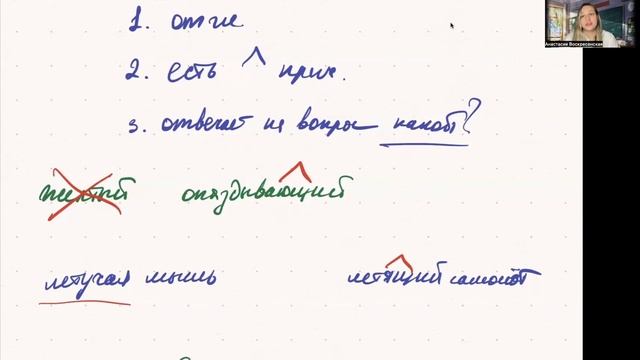 1. отгл
2. есть ^ прич.
3. отвечает на вопрос какой?
желтый опаздывающий
летучая мышь летящий самолёт
Анастасия Воскресенская